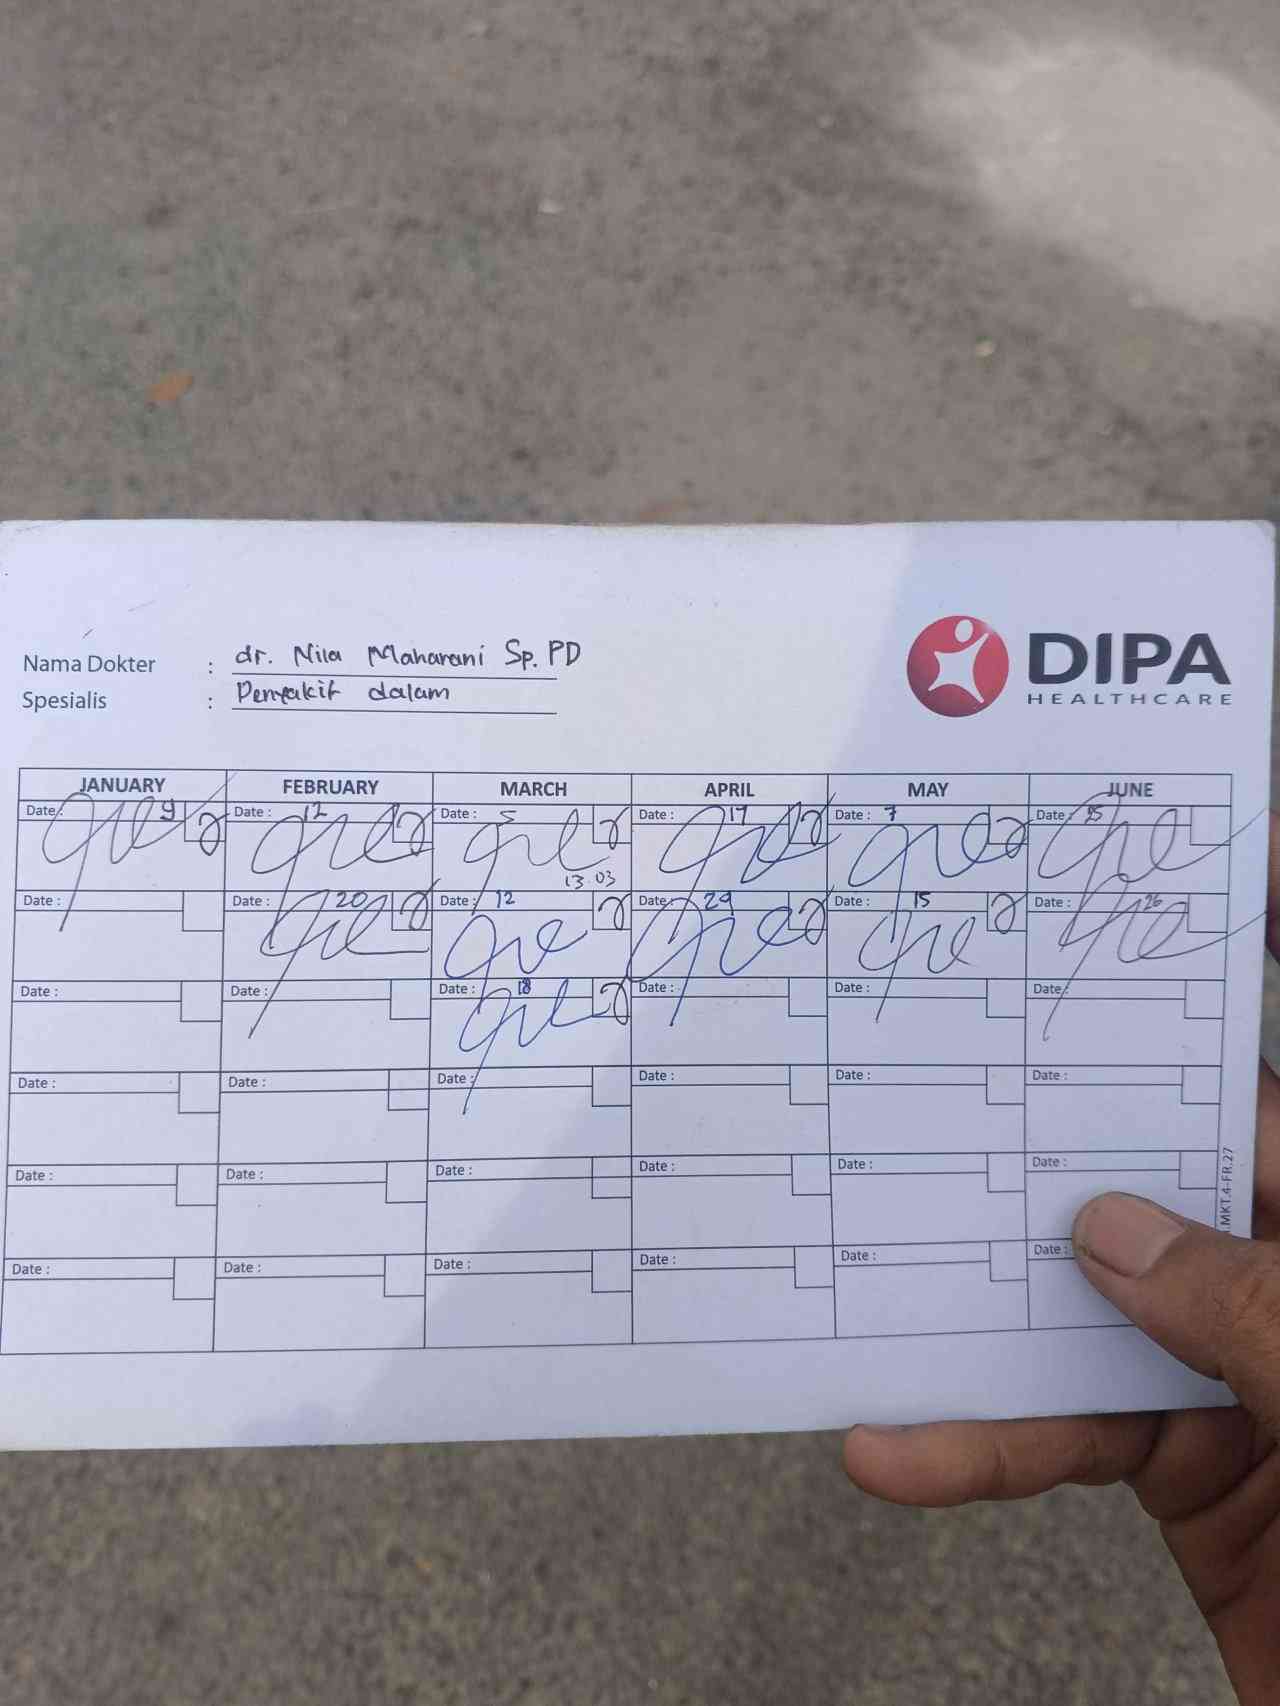 Nama Dokter : dr. Nila Maharani Sp.PD
Spesialis : Penyakit dalam
DIPA
HEALTHCARE
JANUARY FEBRUARY MARCH APRIL MAY JUNE
Date: 9 Date : 12 Date : 5 Date : 17 Date : 7 Date : 25
13.03
Date : Date : 20 Date : 12 Date : 29 Date : 15 Date : 26
Date : Date : Date : 18 Date : Date : Date :
Date : Date : Date : Date : Date : Date :
Date : Date : Date : Date : Date : Date :
Date : Date : Date : Date : Date : Date :
.MKT.4-FR.27